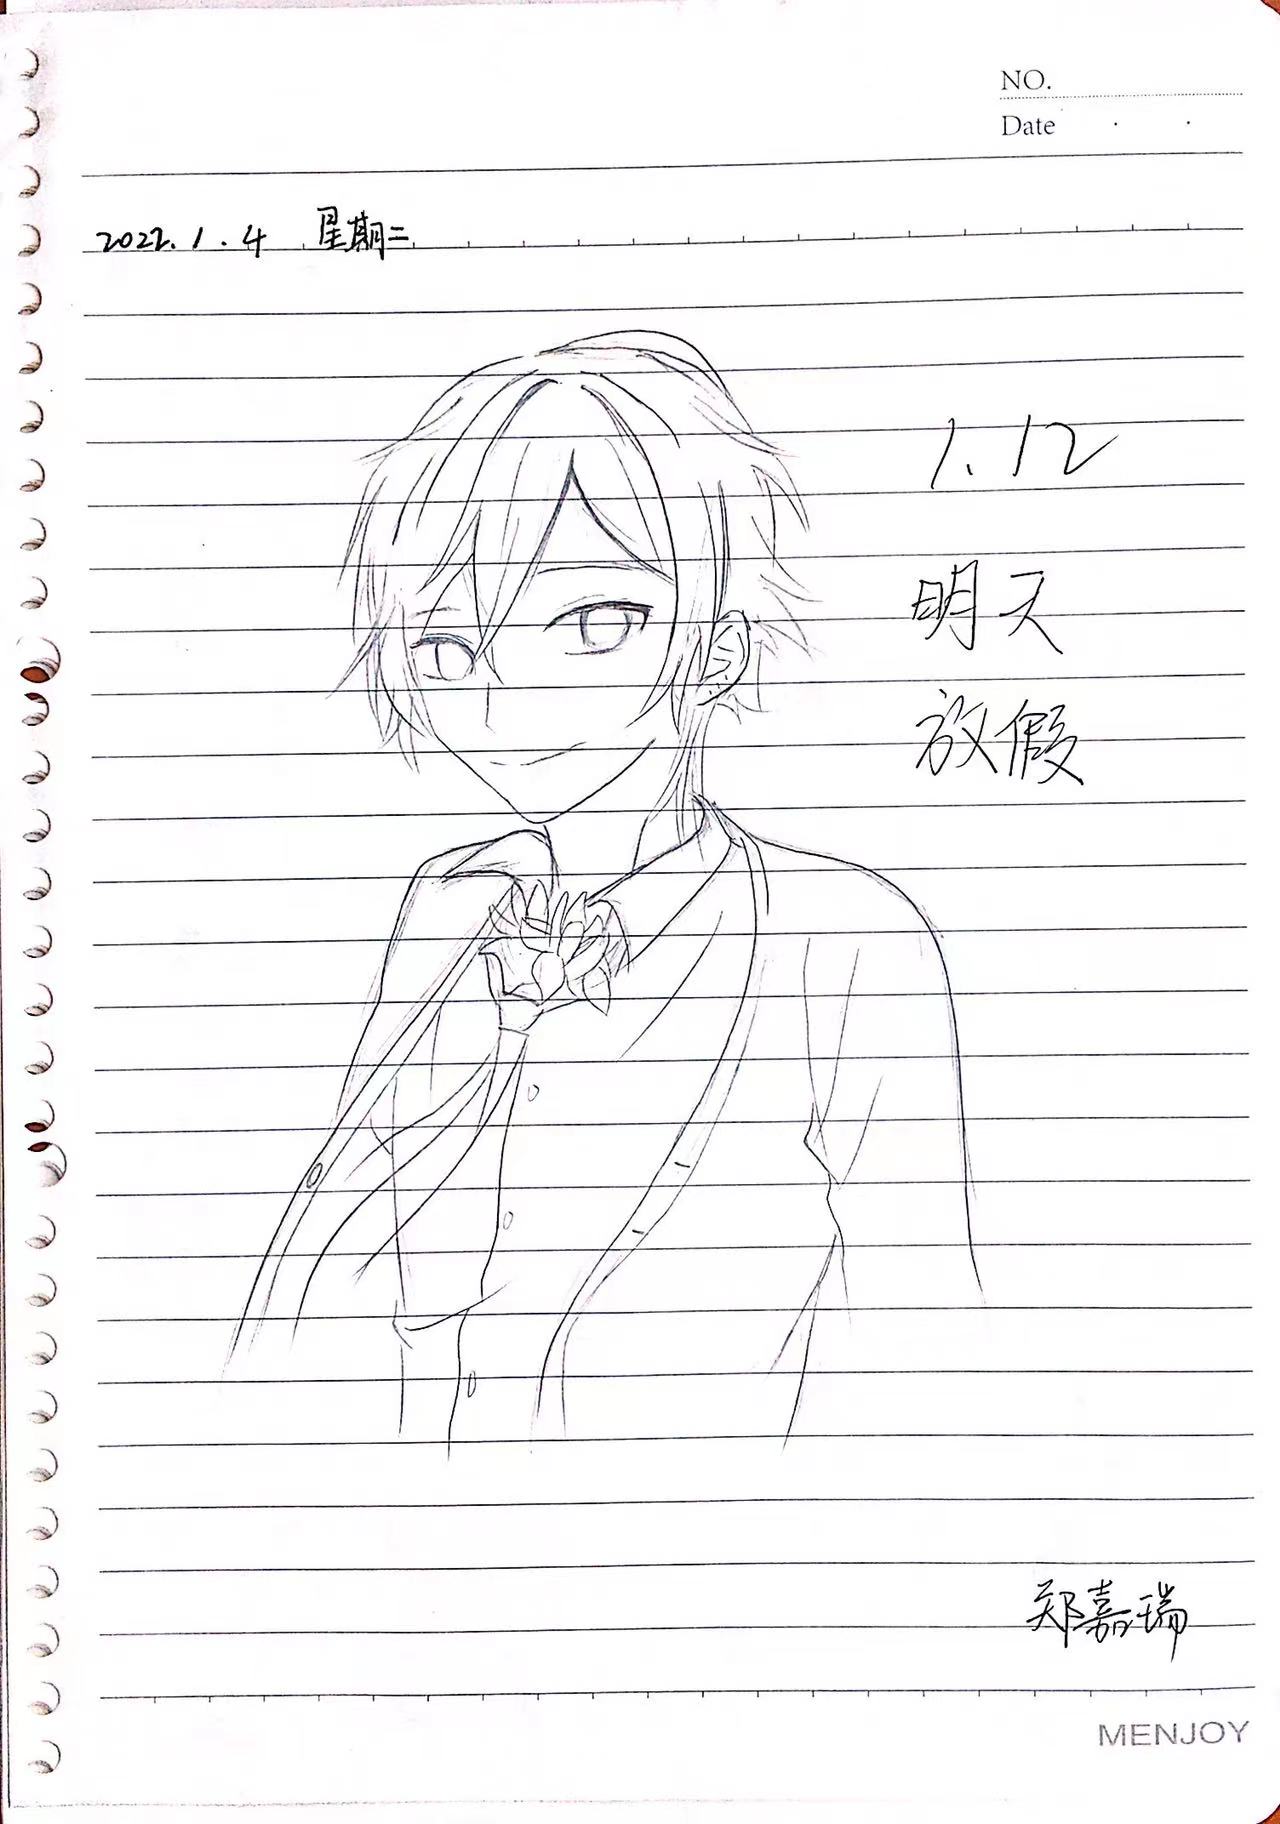 NO.
Date
2022.1.4 星期二
1.12
明天
放假
郑嘉瑞
MENJOY